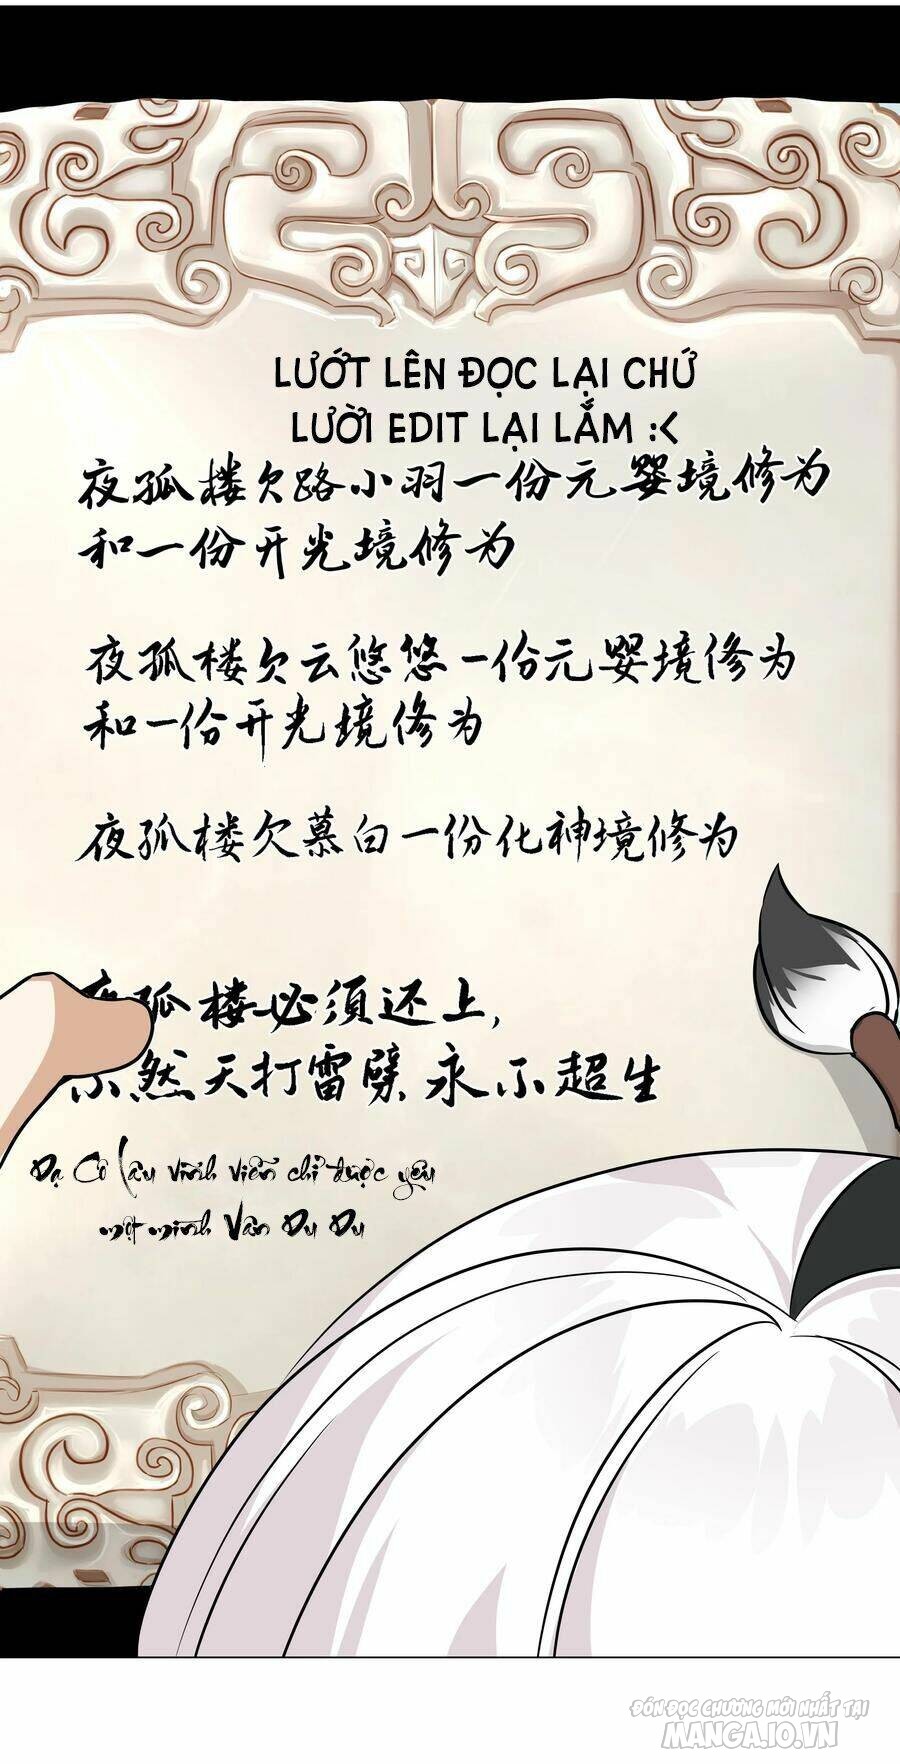 LƯỚT LÊN ĐỌC LẠI CHỨ
LƯỜI EDIT LẠI LẮM :<
夜孤楼欠路小羽一份元婴境修为
和一份开光境修为
夜孤楼欠云悠悠一份元婴境修为
和一份开光境修为
夜孤楼欠慕白一份化神境修为
夜孤楼必须还上,
不然天打雷劈永不超生
Dạ Cô Lâu vĩnh viễn chỉ được yêu
một mình Vân Du Du
ĐÓN ĐỌC CHƯƠNG MỚI NHẤT TẠI
MANGA.IO.VN